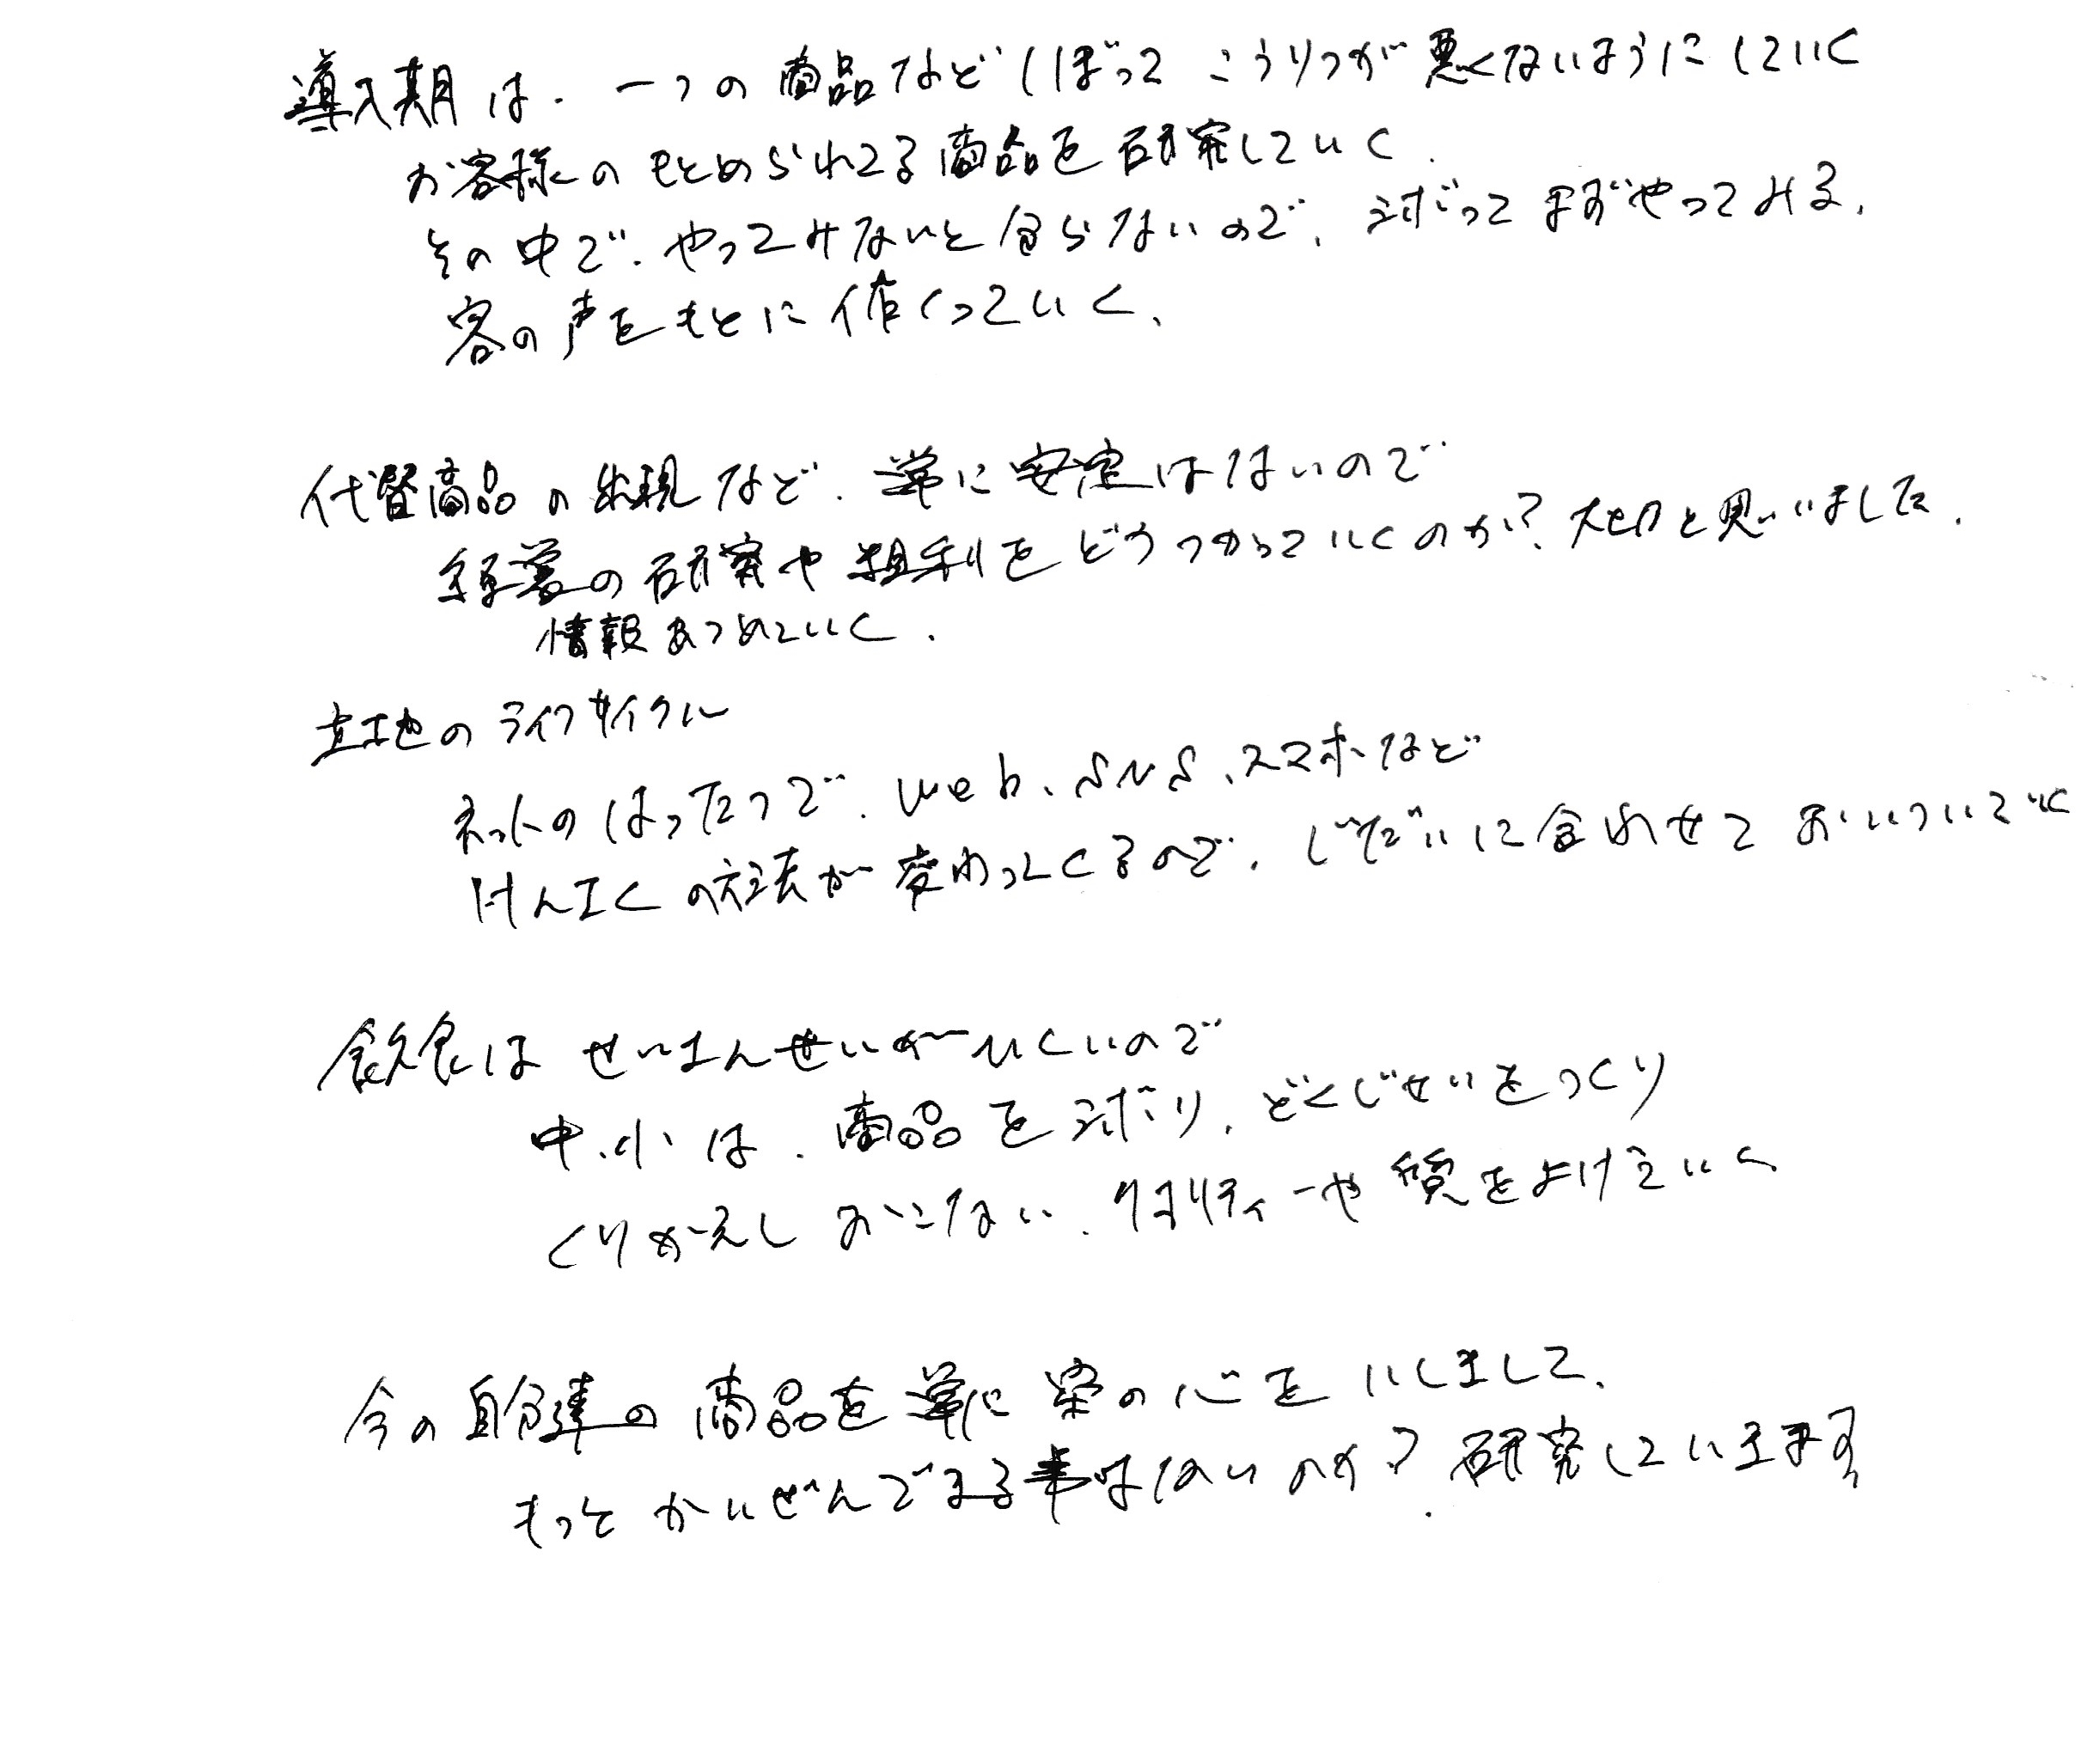 導入期は、一つの商品などしぼって こうりつが悪くないようにしていく
お客様のもとめられてる商品を研究していく.
その中で、やってみないと分らないので、しぼって まずやってみる、
客の声をもとに作くっていく、
代替商品の出現など、常に安定はないので
経営の研究や粗利をどうつかっていくのか?大切と思いました.
情報あつめていく.
立地のライフサイクル
ネットのはったつで、web、SNS、スマホなど
けんさくの方法が変わってくるので、じだいに合わせておいついていく
飲食は せいさんせいがひくいので
中、小は、商品をしぼり、どくじせいをつくり
くりかえしおこない、クオリティーや質をよけていく
今の自分達の商品を常に の心を しまして、
もっと かいぜんできる事はないのか?研究しています